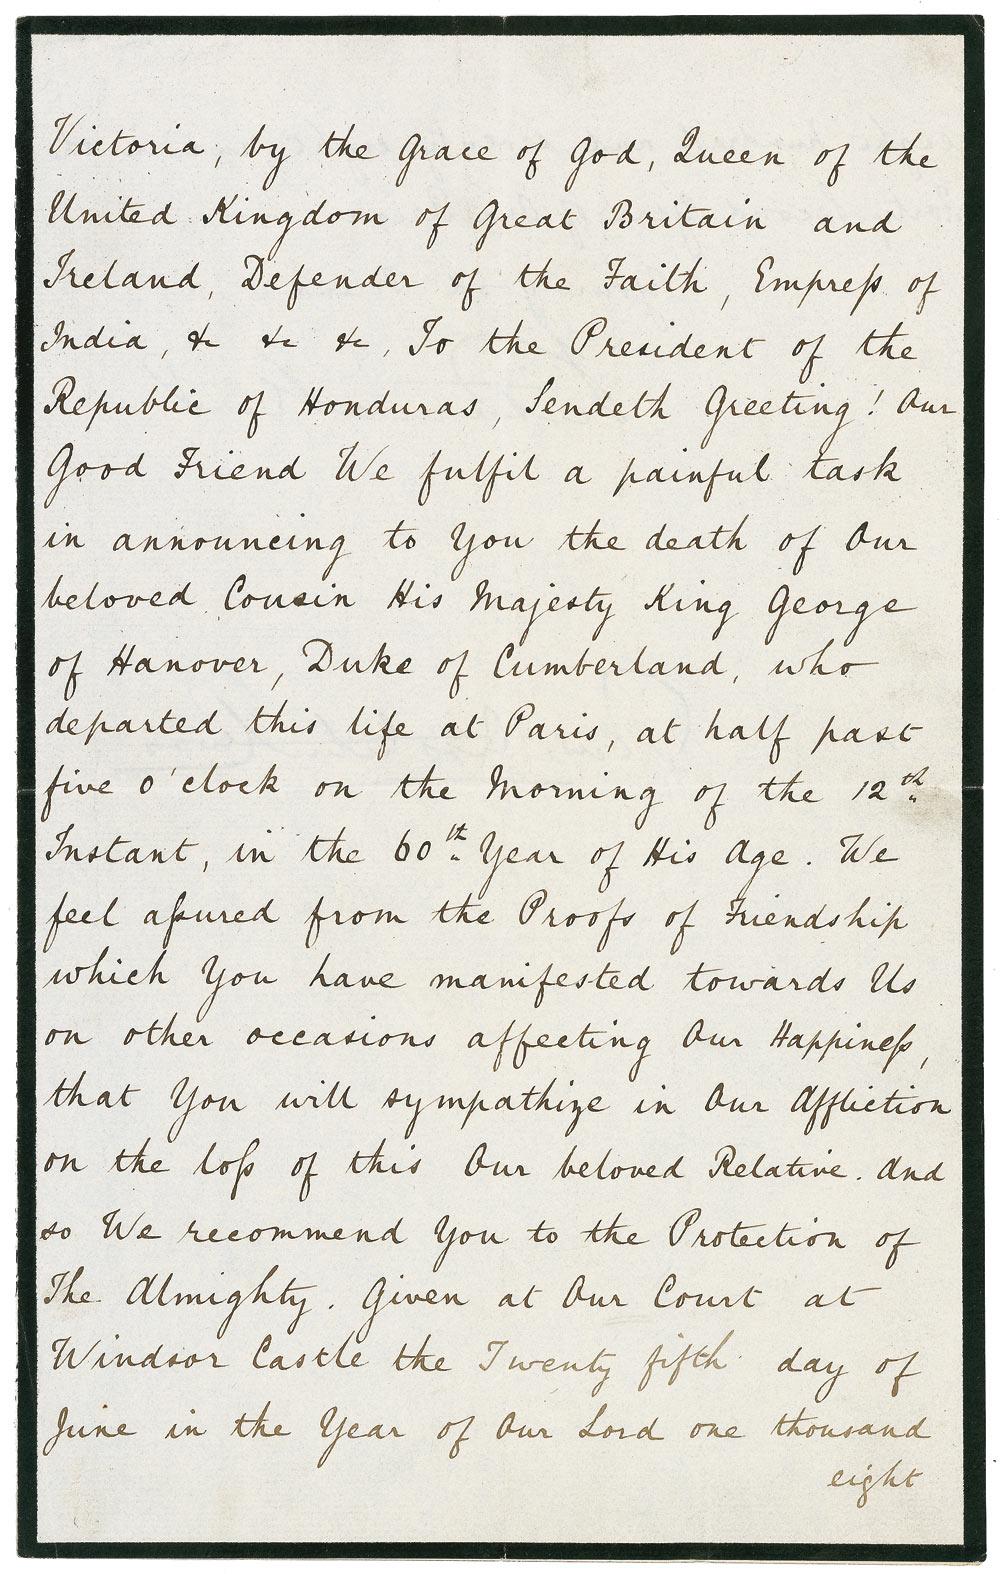 Victoria, by the Grace of God, Queen of the
United Kingdom of Great Britain and
Ireland, Defender of the Faith, Empreſs of
India, &c &c &c, To the President of the
Republic of Honduras, Sendeth Greeting! Our
Good Friend We fulfil a painful task
in announcing to You the death of Our
beloved Cousin His Majesty King George
of Hanover, Duke of Cumberland, who
departed this life at Paris, at half past
five o'clock on the Morning of the 12th
Instant, in the 60th Year of His Age. We
feel aſsured from the Proofs of Friendship
which You have manifested towards Us
on other occasions affecting Our Happineſs,
that You will sympathize in Our Affliction
on the loſs of this Our beloved Relative. And
so We recommend You to the Protection of
The Almighty. Given at Our Court at
Windsor Castle the Twenty fifth day of
June in the Year of Our Lord one thousand
eight